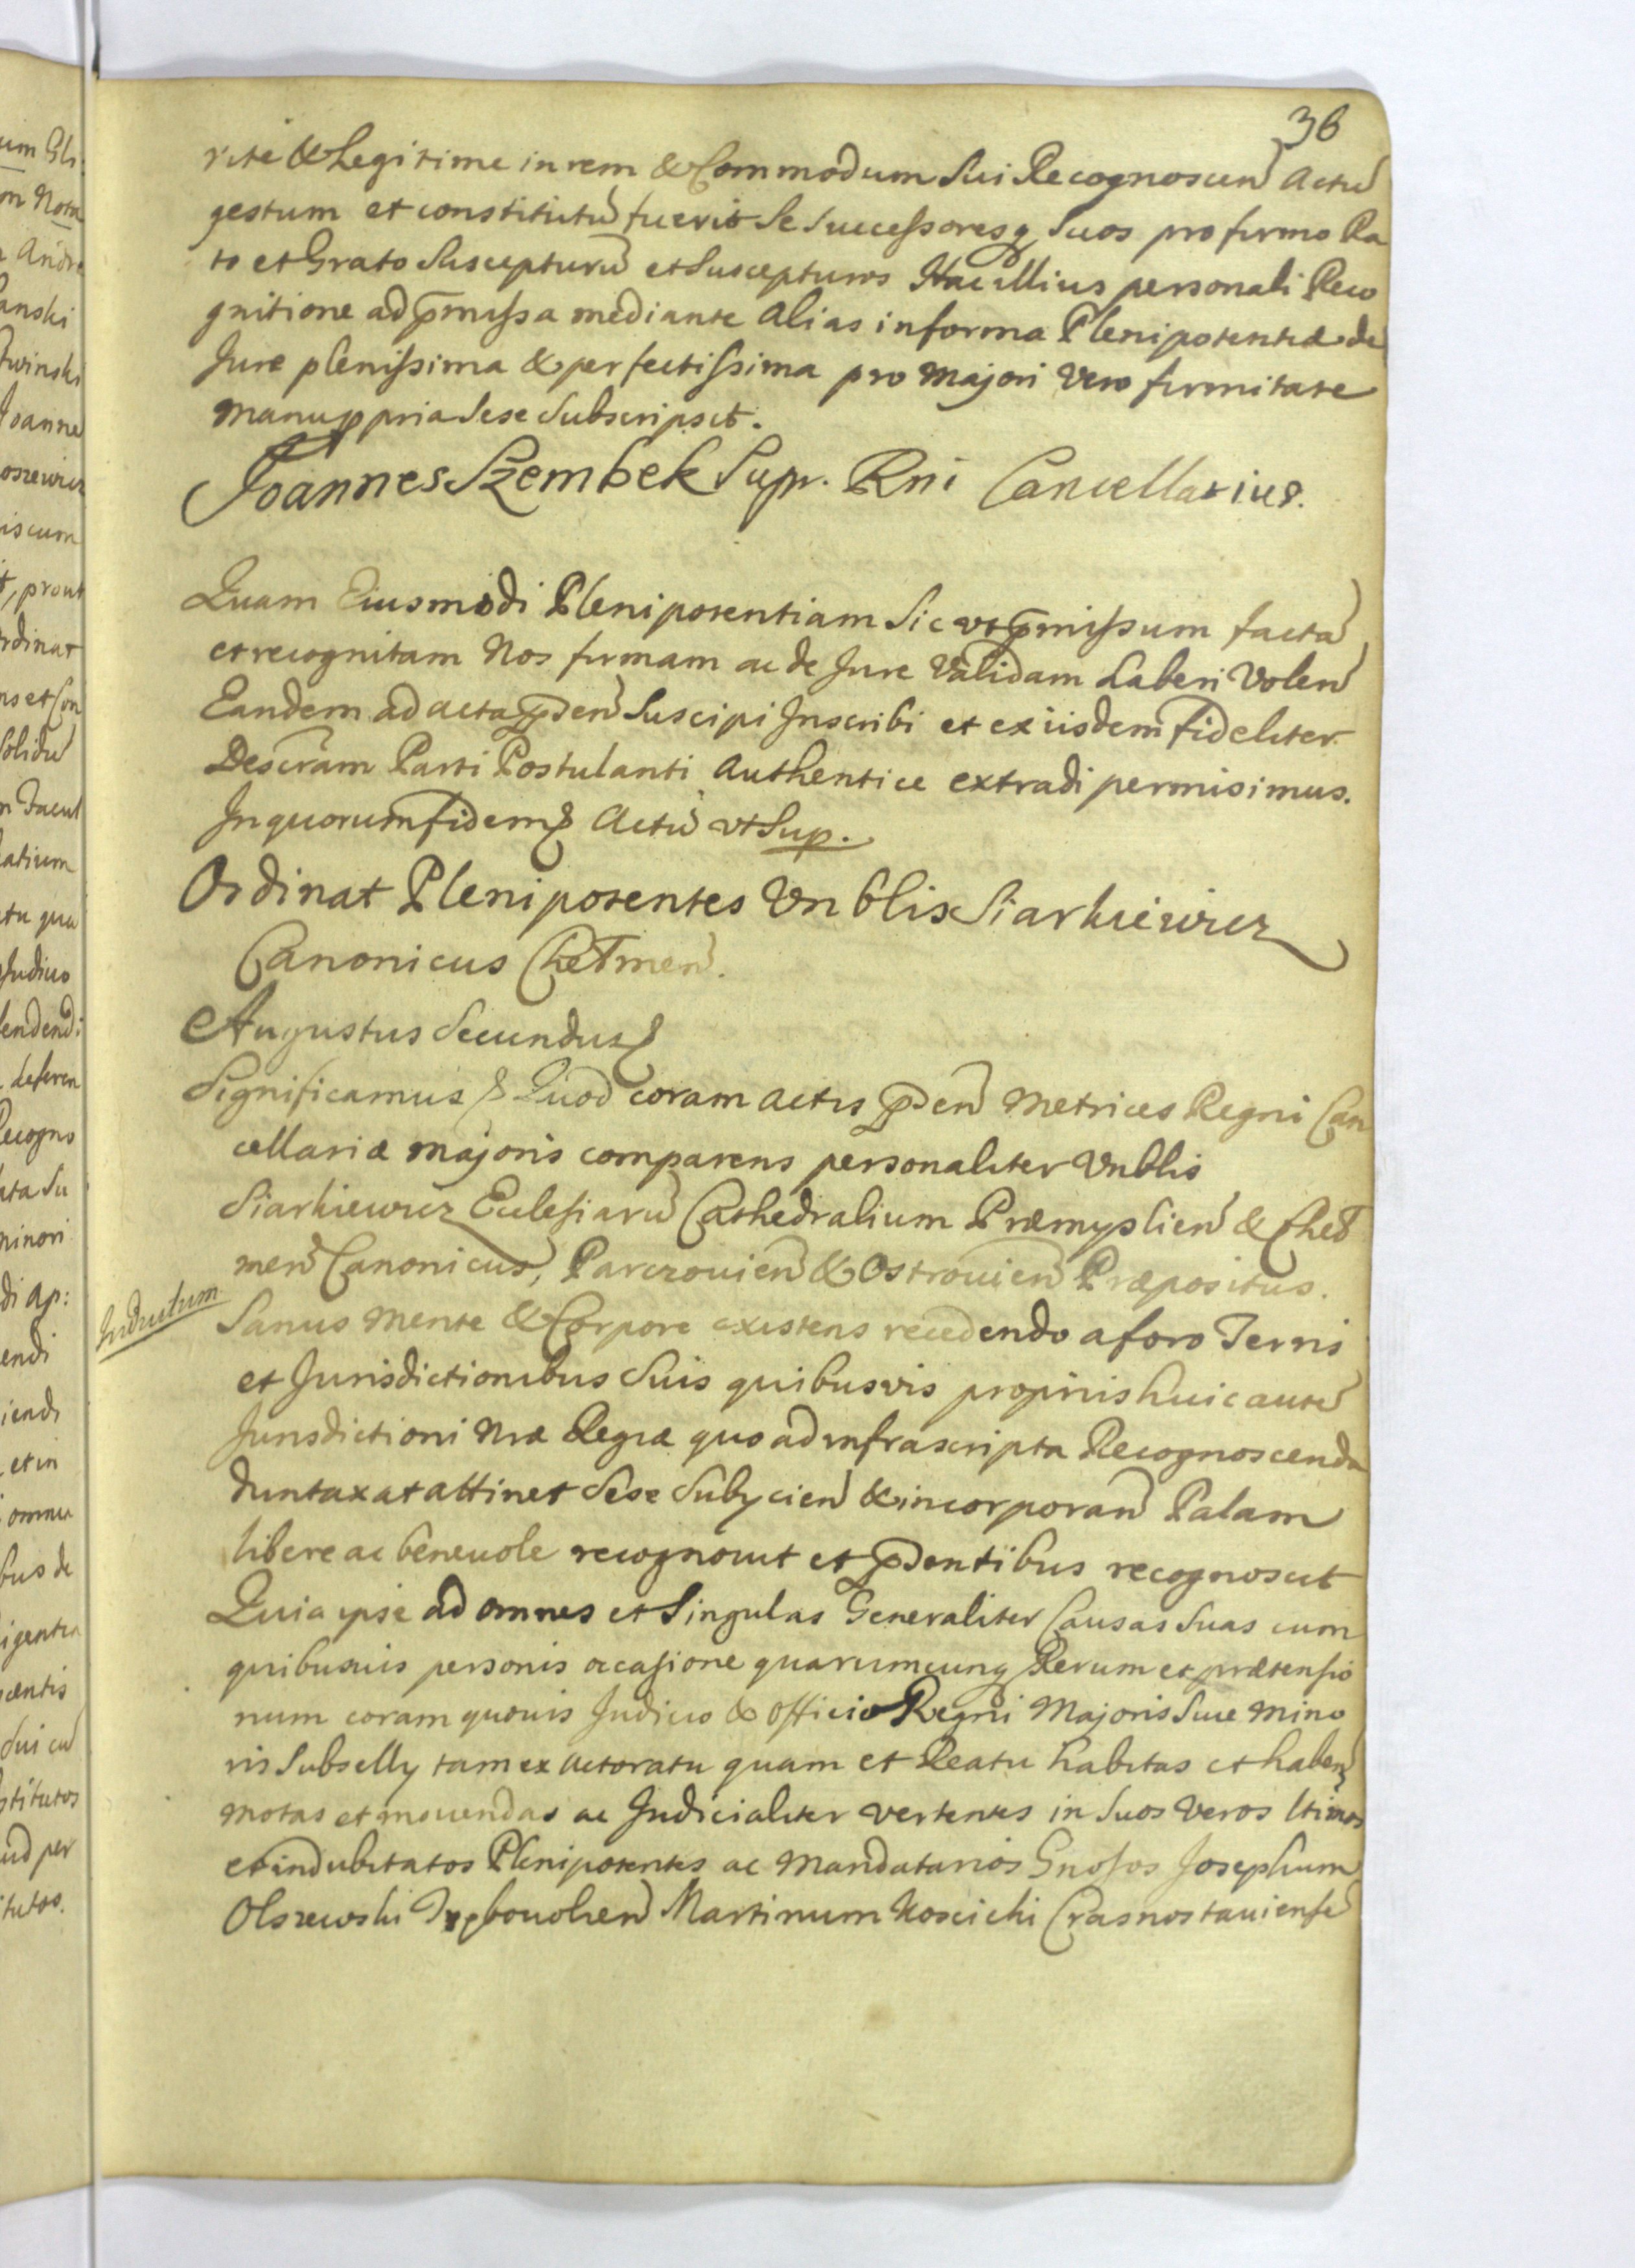 36
rite & Legitime in rem & Commodum Sui Recognoscen̄ Actū
gestum et constitutū fuerit Se Successoresq̄ Suos pro firmo Ra
to et Grato Suscepturū et Suscepturos Hac illius personali Reco
gnitione ad p̄missa mediante Alias in forma Plenipotentiæ de
Jure plenissima & perfectissima pro Majori Vero firmitate
Manu ppria Sese Subscripsit.
Joannes Szembek Supr. Rni Cancellarius.
Quam Eiusmodi Plenipotentiam Sic vt p̄missum factā
et recognitam Nos firmam ac de Jure Validam haberi Volen̄
Eandem ad acta p̄den̄ Suscipi Inscribi et ex iisdem fideliter
Descr̄am Parti Postulanti Authentice extradi permisimus.
In quorum fidem Actū vt Sup.
Ordinat Plenipotentes Vnblis Siarkiewicz
Canonicus Chełmen̄.
Augustus Secundus
Significamus Quod coram Actis p̄den̄ Metrices Regni Can
cellariæ Majoris comparens personaliter Vnblis
Siarkiewicz Eclesiarū Cathedralium Præmyslien̄ & Cheł
men̄ Canonicus, Parczouien̄ & Ostrouien̄ Præpositus.
Indultum
Sanus Mente & Corpore existens recedendo a foro Terris
et Jurisdictionibus Suis quibusvis proprijs huic autē
Jurisdictioni Nræ Regiæ quo ad infrascripta Recognoscenda
duntaxat attinet Sese Subijcien̄ & incorporan̄ Palam
libere ac beneuole recognouit et p̄sentibus recognoscit
Quia ipse ad omnes et Singulas Generaliter Causas Suas cum
quibusuis personis occasione quarumcunq̄ Rerum et prætensio
num coram quouis Judicio & Officio Regni Majoris Siue Mino
ris Subsellij tam ex Actoratu quam et Reatu habitas et haben̄
motas et mouendas ac Judicialiter vertentes in Suos Veros ltimos
et indubitatos Plenipotentes ac Mandatarios Gnosos Josephum
Olszewski Martinum Koscicki Crasnostauiensē